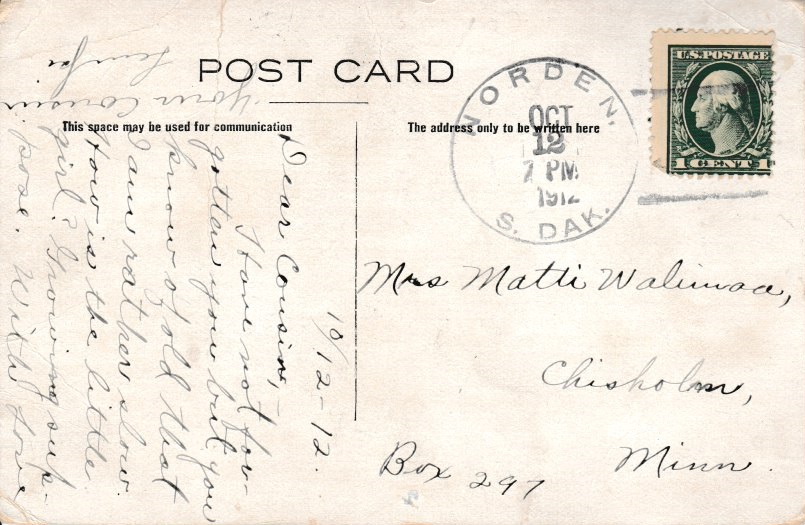 POST CARD
This space may be used for communication
The address only to be written here
U.S. POSTAGE
1 CENT 1
NORDEN,
OCT
12
7 PM
1912
S. DAK.
10/12-12.
Dear Cousin,-
Have not for-
gotten you but you
know of old that
I am rather slow.
How is the little
girl? Growing sup-
pose. With love
Your Cousin
Mrs Matti Walimaa,
Chisholm,
Minn.
Box 297